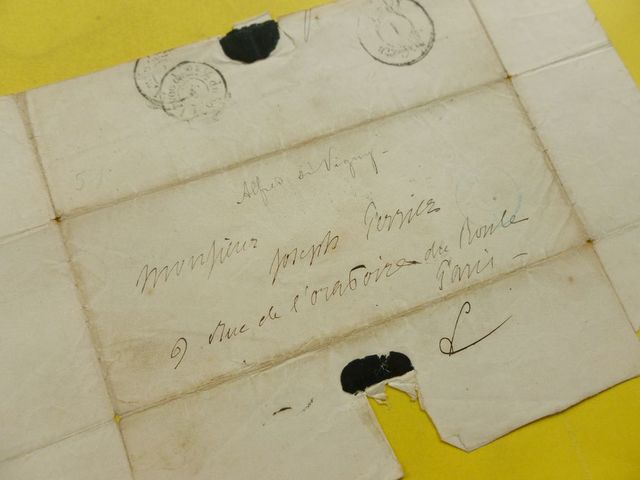 Alfred de Vigny -
Monsieur
Joseph Perrier
9 Rue de l'oratoire du Roule
Paris -